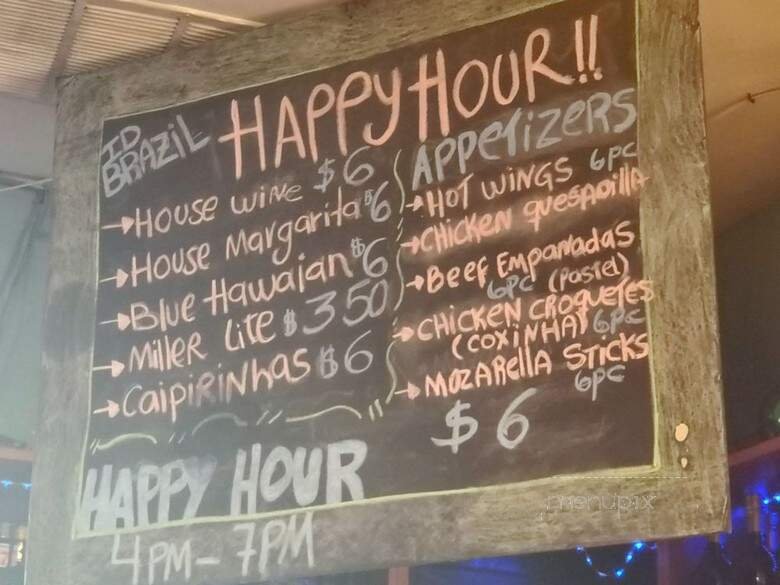 ID
BRAZIL
HAPPY HOUR!!
→HOUSE WINE $6
→HOUSE MARGARITA $6
→BLUE HAWAIAN $6
→MILLER LITE $3 50
→CAIPIRINHAS $6
APPETIZERS
→HOT WINGS 6PC
→CHICKEN QUESADILLA
→BEEF EMPANADAS
6PC (PASTEL)
→CHICKEN CROQUETES
(COXINHA) 6PC
→MOZARELLA STICKS
6PC
$6
HAPPY HOUR
4PM-7PM
menupix